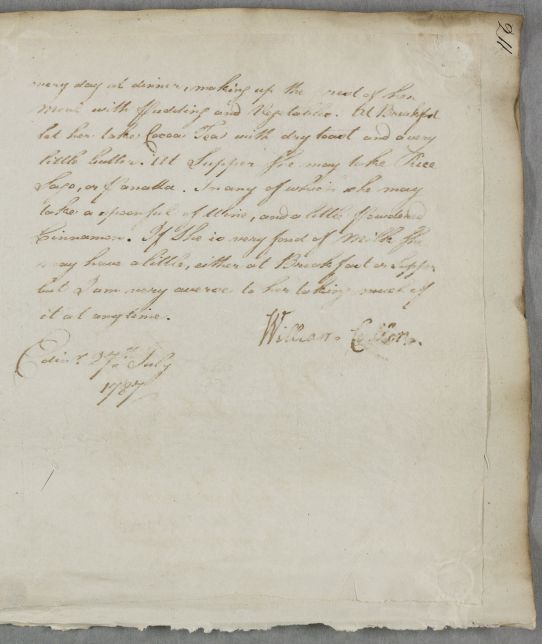 211
every day at dinner, making up the rest of her
meal with Pudding and Vegetables. At Breakfast
let her take Cocoa Tea with dry toast and a very
little butter. At Supper she may take Rice
Sago, or Panatta. In any of which she may
take a spoonful of Wine, and a little Powdered
Cinnamon. If She is very fond of Milk She
may have a little, either at Breakfast or Supper
but I am very averse to her taking much of
it at any time.
William Cullen.
Edinr. 27th July
1787